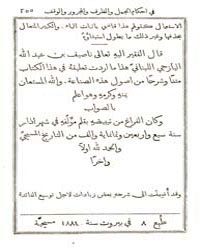 في احكام الجمل والظرف والمجرور والوقف ٢٥٥
الاستعمال كقولهم هذا قاضي باثبات الياء. والكثير المختار
بحذفها وغير ذلك ما يطول استيفاؤه
قال الفقير اليه تعالى ناصيف بن عبد الله
اليازجي اللبناني هذا ما اردت تعليقه في هذا الكتاب
متنًا وشرحًا من اصول هذه الصناعة. والله المستعان
بمنه وكرمه وهو اعلم
بالصواب
وكان الفراغ من تبييضه بقلم مؤلفه في شهر اذار
سنة سبع واربعين وثمانية والف من التاريخ المسيحي
والحمد لله اولا
واخرًا
وقد أضيفت الى شرحه بعض زيادات لاجل توسيع الفائدة
طبع ٨ في بيروت سنة ١٨٨٩ مسيحية